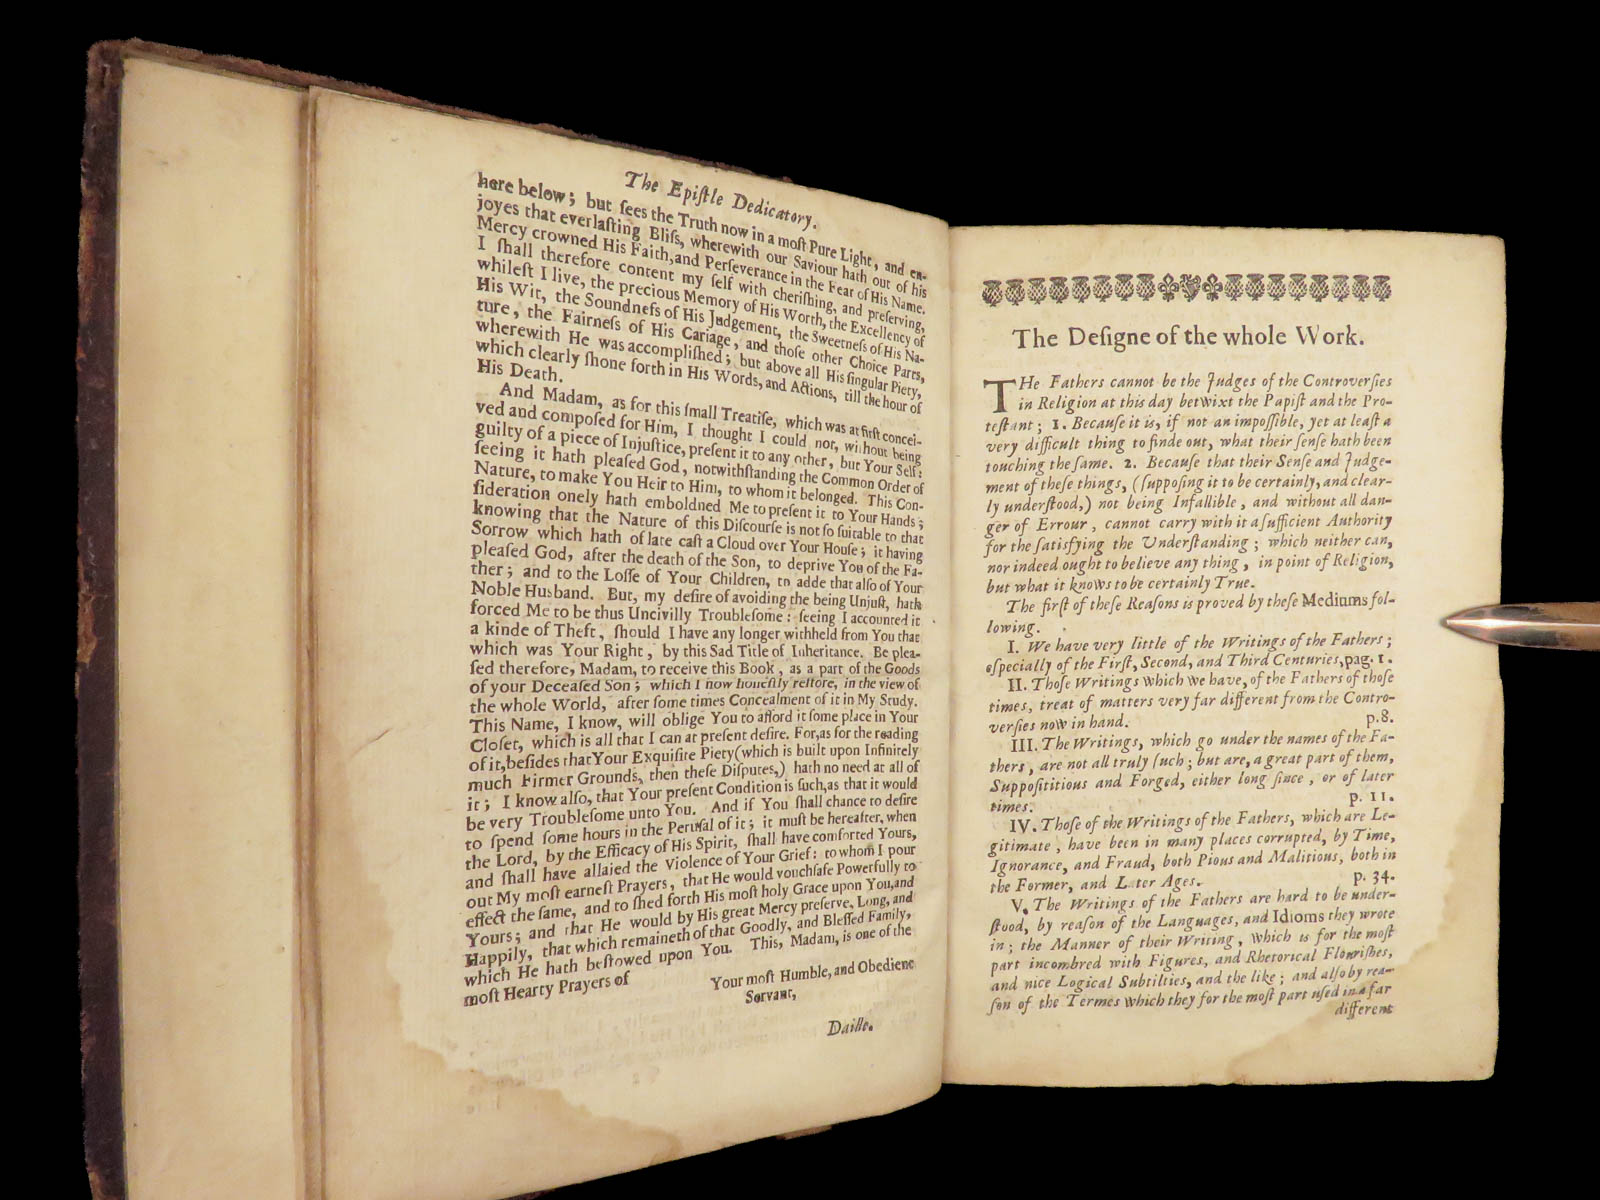 The Epiſtle Dedicatory.
here below; but ſees the Truth now in a moſt Pure Light, and en-
joyes that everlaſting Bliſs, wherewith our Saviour hath out of his
Mercy crowned His Faith, and Perſeverance in the Fear of His Name.
I ſhall therefore content my ſelf with cheriſhing, and preſerving,
whileſt I live, the precious Memory of His Worth, the Excellency of
His Wit, the Soundneſs of His Judgement, the Sweetneſs of His Na-
ture, the Fairneſs of His Cariage, and thoſe other Choice Parts,
wherewith He was accompliſhed; but above all His ſingular Piety,
which clearly ſhone forth in His Words, and Actions, till the hour of
His Death.
And Madam, as for this ſmall Treatiſe, which was at firſt concei-
ved and compoſed for Him, I thought I could not, without being
guilty of a piece of Injuſtice, preſent it to any other, but Your Self:
ſeeing it hath pleaſed God, notwithſtanding the Common Order of
Nature, to make You Heir to Him, to whom it belonged. This Con-
ſideration onely hath emboldned Me to preſent it to Your Hands;
knowing that the Nature of this Diſcourſe is not ſo ſuitable to that
Sorrow which hath of late caſt a Cloud over Your Houſe; it having
pleaſed God, after the death of the Son, to deprive You of the Fa-
ther; and to the Loſſe of Your Children, to adde that alſo of Your
Noble Husband. But, my deſire of avoiding the being Unjuſt, hath
forced Me to be thus Uncivilly Troubleſome: ſeeing I accounted it
a kinde of Theft, ſhould I have any longer withheld from You that
which was Your Right, by this Sad Title of Inheritance. Be plea-
ſed therefore, Madam, to receive this Book, as a part of the Goods
of your Deceaſed Son; which I now honeſtly reſtore, in the view of
the whole World, after ſome times Concealment of it in My Study.
This Name, I know, will oblige You to afford it ſome place in Your
Cloſet, which is all that I can at preſent deſire. For, as for the reading
of it, beſides that Your Exquiſite Piety (which is built upon Infinitely
much Firmer Grounds, then theſe Diſputes,) hath no need at all of
it; I know alſo, that Your preſent Condition is ſuch, as that it would
be very Troubleſome unto You. And if You ſhall chance to deſire
to ſpend ſome hours in the Peruſal of it; it muſt be hereafter, when
the Lord, by the Efficacy of His Spirit, ſhall have comforted Yours,
and ſhall have allaied the Violence of Your Grief: to whom I pour
out My moſt earneſt Prayers, that He would vouchſafe Powerfully to
effect the ſame, and to ſhed forth His moſt holy Grace upon You, and
Yours; and that He would by His great Mercy preſerve, Long, and
Happily, that which remaineth of that Goodly, and Bleſſed Family,
which He hath beſtowed upon You. This, Madam, is one of the
moſt Hearty Prayers of
Your moſt Humble, and Obedient
Servant,
Daille.
The Deſigne of the whole Work.
THe Fathers cannot be the Judges of the Controverſies
in Religion at this day betwixt the Papiſt and the Pro-
teſtant; 1. Becauſe it is, if not an impoſſible, yet at leaſt a
very difficult thing to finde out, what their ſenſe hath been
touching the ſame. 2. Becauſe that their Senſe and Judge-
ment of theſe things, (ſuppoſing it to be certainly, and clear-
ly underſtood,) not being Infallible, and without all dan-
ger of Errour, cannot carry with it a ſufficient Authority
for the ſatisfying the Underſtanding; which neither can,
nor indeed ought to believe any thing, in point of Religion,
but what it knows to be certainly True.
The firſt of theſe Reaſons is proved by theſe Mediums fol-
lowing.
I. We have very little of the Writings of the Fathers;
eſpecially of the Firſt, Second, and Third Centuries, pag. 1.
II. Thoſe Writings which we have, of the Fathers of thoſe
times, treat of matters very far different from the Contro-
verſies now in hand. p. 8.
III. The Writings, which go under the names of the Fa-
thers, are not all truly ſuch; but are, a great part of them,
Suppoſititious and Forged, either long ſince, or of later
times. p. 11.
IV. Thoſe of the Writings of the Fathers, which are Le-
gitimate, have been in many places corrupted, by Time,
Ignorance, and Fraud, both Pious and Malitious, both in
the Former, and Later Ages. p. 34.
V. The Writings of the Fathers are hard to be under-
ſtood, by reaſon of the Languages, and Idioms they wrote
in; the Manner of their Writing, which is for the moſt
part incombred with Figures, and Rhetorical Flouriſhes,
and nice Logical Subtilties, and the like; and alſo by rea-
ſon of the Termes which they for the moſt part uſed in a far
different